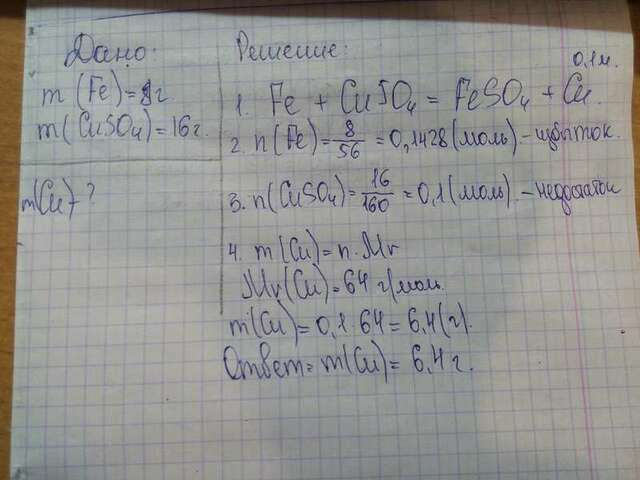 Дано:
m (Fe) = 8г.
m(CuSO₄) = 16г.
m(Cu) - ?
Решение:
0,1м.
1. Fe + CuSO₄ = FeSO₄ + Cu.
2. n(Fe) = 8/56 = 0,1428(моль) - избыток.
3. n(CuSO₄) = 16/160 = 0,1(моль). - недостаток
4. m(Cu) = n · Mr
Mr(Cu) = 64 г/моль.
m(Cu) = 0,1 · 64 = 6,4(г).
Ответ = m(Cu) = 6,4г.